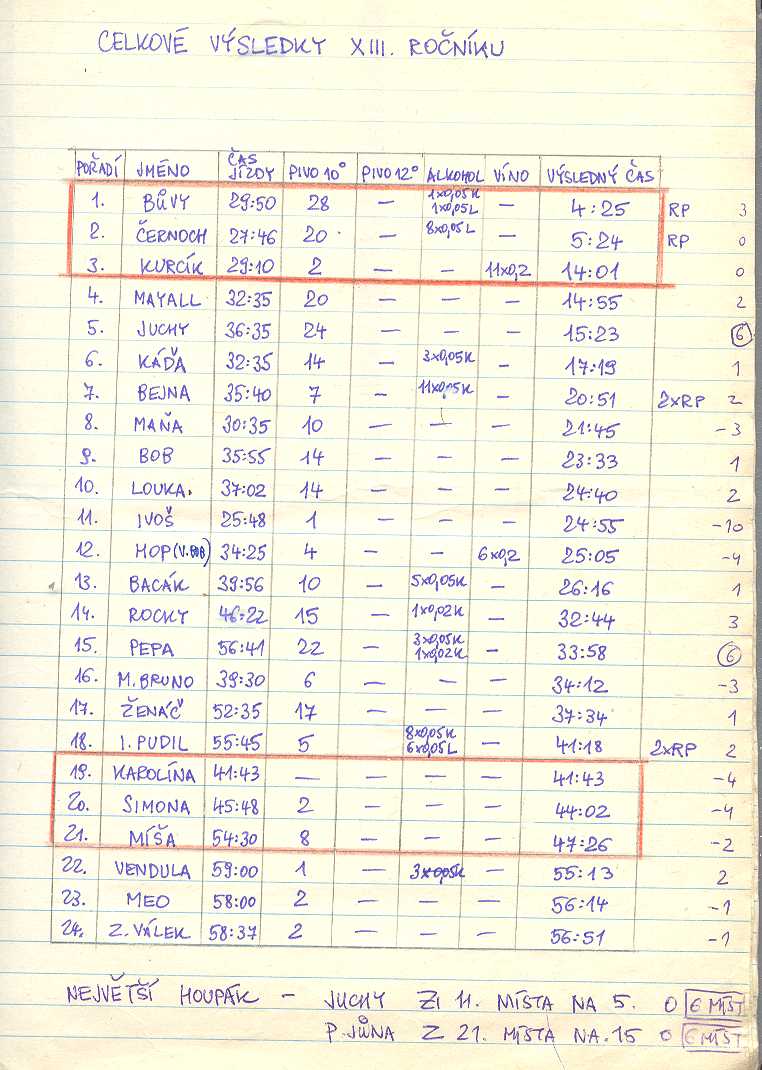 CELKOVÉ VÝSLEDKY XIII. ROČNÍKU
POŘADÍ JMÉNO ČAS JÍZDY PIVO 10° PIVO 12° ALKOHOL VÍNO VÝSLEDNÝ ČAS
1. BŮVY 29:50 28 — 1x0,05K 1x0,05L — 4:25 RP 3
2. ČERNOCH 27:46 20 — 8x0,05L — 5:24 RP 0
3. KURCÍK 29:10 2 — — 11x0,2 14:01 0
4. MAYALL 32:35 20 — — — 14:55 2
5. JUCHY 36:35 24 — — — 15:23 6
6. KÁĎA 32:35 14 — 3x0,05K — 17:19 1
7. BEJNA 35:40 7 — 11x0,05K — 20:51 2xRP 2
8. MAŇA 30:35 10 — — — 21:45 -3
9. BOB 35:55 14 — — — 23:33 1
10. LOUKA. 37:02 14 — — — 24:40 2
11. IVOŠ 25:48 1 — — — 24:55 -10
12. HOP (V. BOB) 34:25 4 — — 6x0,2 25:05 -4
13. BACÁK 39:56 10 — 5x0,05K — 26:16 1
14. ROCKY 46:22 15 — 1x0,02K — 32:44 3
15. PEPA 56:41 22 — 3x0,05K 1x0,02K — 33:58 6
16. M. BRUNO 39:30 6 — — — 34:12 -3
17. ŽENÁČ 52:35 17 — — — 37:34 1
18. I. PUDIL 55:45 5 8x0,05K 6x0,05L — 41:18 2xRP 2
19. KAROLÍNA 41:43 — — — — 41:43 -4
20. SIMONA 45:48 2 — — — 44:02 -4
21. MÍŠA 54:30 8 — — — 47:26 -2
22. VENDULA 59:00 1 — 3x0,05K — 55:13 2
23. MEO 58:00 2 — — — 56:14 -1
24. Z. VÁLEK 58:37 2 — — — 56:51 -1
NEJVĚTŠÍ HOUPÁK — JUCHY ZE 11. MÍSTA NA 5. O 6 MÍST
P. JŮNA Z 21. MÍSTA NA 15 O 6 MÍST